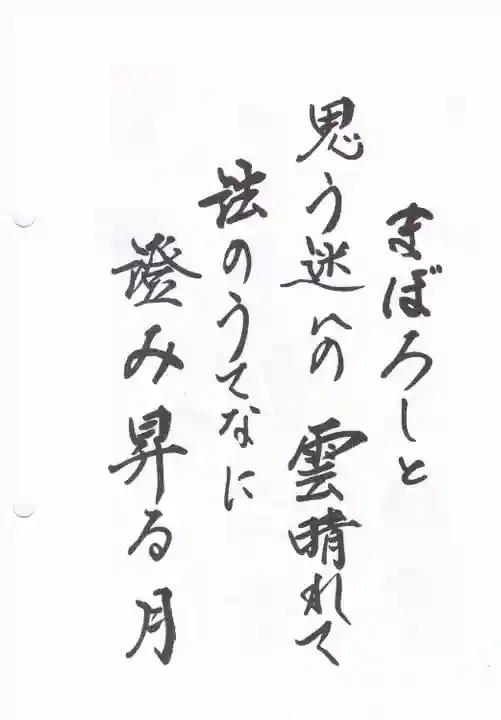 まぼろしと
思う迷いの雲晴れて
法のうてなに
澄み昇る月